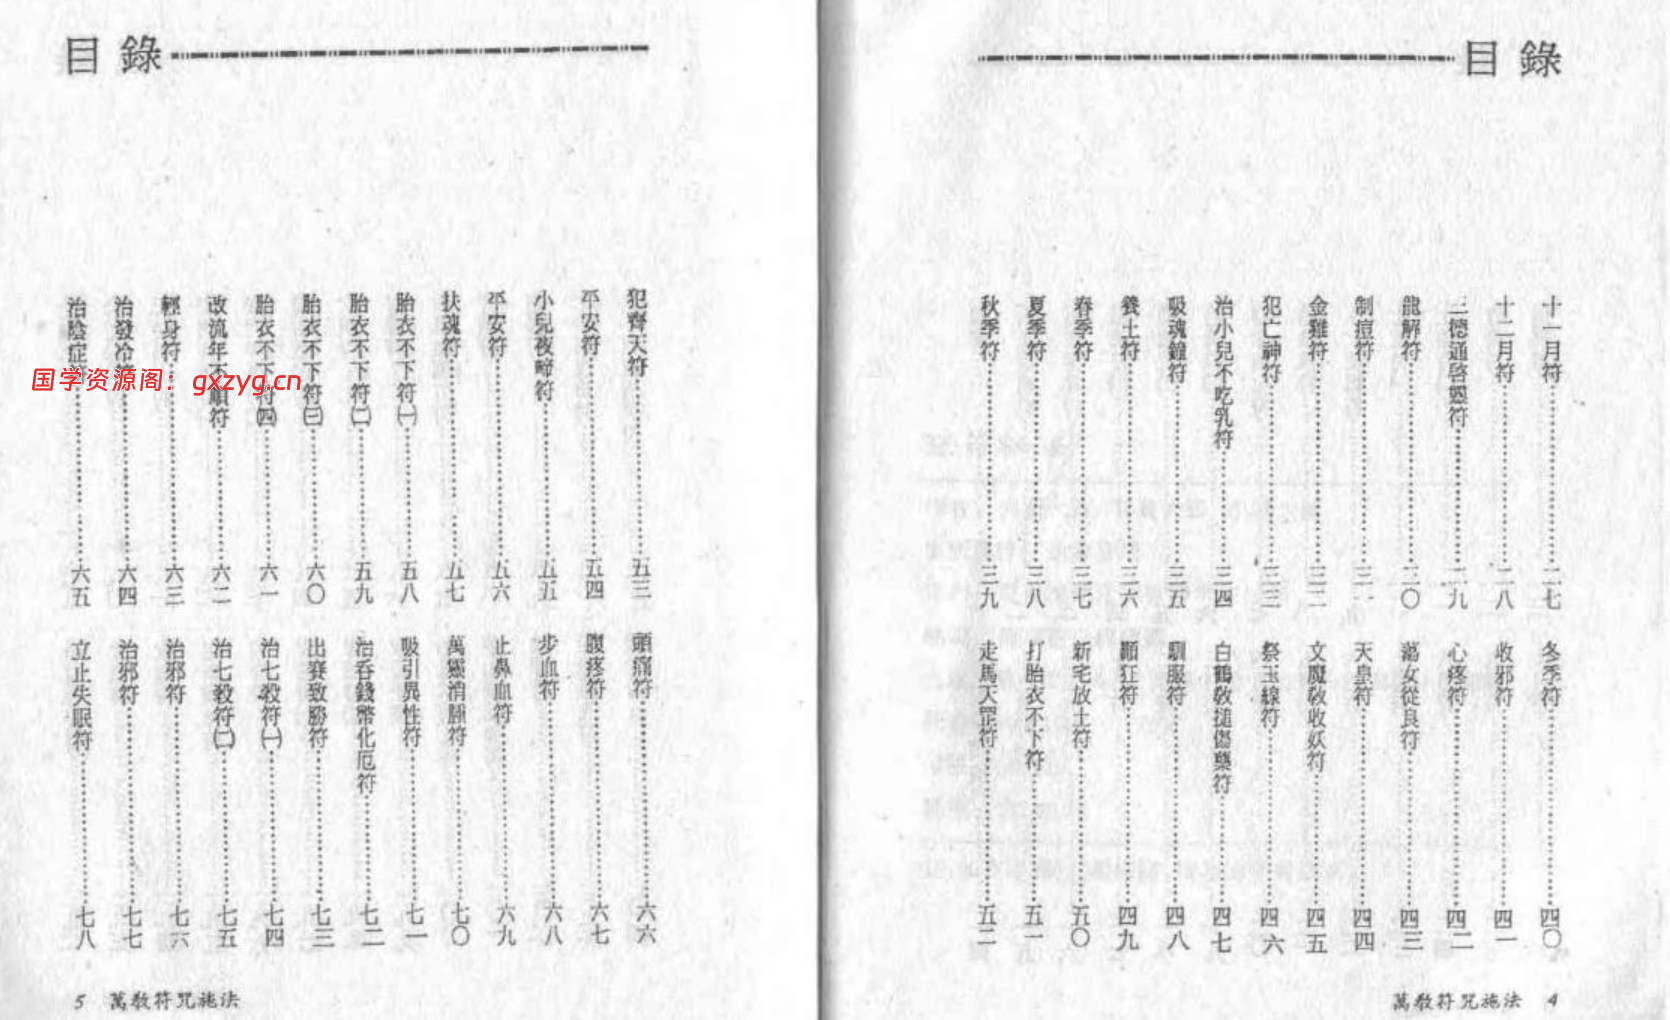 目錄
十一月符⋯⋯二七
十二月符⋯⋯二八
三德通啓愿符⋯⋯二九
龍解符⋯⋯三〇
制痘符⋯⋯三一
金雞符⋯⋯三二
犯亡神符⋯⋯三三
治小兒不吃乳符⋯⋯三四
吸魂鐘符⋯⋯三五
養土符⋯⋯三六
春季符⋯⋯三七
夏季符⋯⋯三八
秋季符⋯⋯三九
冬季符⋯⋯四〇
收邪符⋯⋯四一
心疼符⋯⋯四二
蕩女從良符⋯⋯四三
天皇符⋯⋯四四
文魔敎收妖符⋯⋯四五
祭玉線符⋯⋯四六
白鶴敎搥傷藥符⋯⋯四七
馴服符⋯⋯四八
顚狂符⋯⋯四九
新宅放土符⋯⋯五〇
打胎衣不下符⋯⋯五一
走馬天罡符⋯⋯五二
萬敎符咒施法 4
目錄
犯齊天符⋯⋯五三
平安符⋯⋯五四
小兒夜啼符⋯⋯五五
平安符⋯⋯五六
扶魂符⋯⋯五七
胎衣不下符㈠⋯⋯五八
胎衣不下符㈡⋯⋯五九
胎衣不下符㈢⋯⋯六〇
胎衣不下符㈣⋯⋯六一
改流年不順符⋯⋯六二
輕身符⋯⋯六三
治發冷符⋯⋯六四
治陰症符⋯⋯六五
頭痛符⋯⋯六六
腹疼符⋯⋯六七
步血符⋯⋯六八
止鼻血符⋯⋯六九
萬靈消腫符⋯⋯七〇
吸引異性符⋯⋯七一
治吞錢幣化厄符⋯⋯七二
出賽致勝符⋯⋯七三
治七殺符㈠⋯⋯七四
治七殺符㈡⋯⋯七五
治邪符⋯⋯七六
治邪符⋯⋯七七
立止失眠符⋯⋯七八
5 萬敎符咒施法
国学资源阁：gxzyg.cn